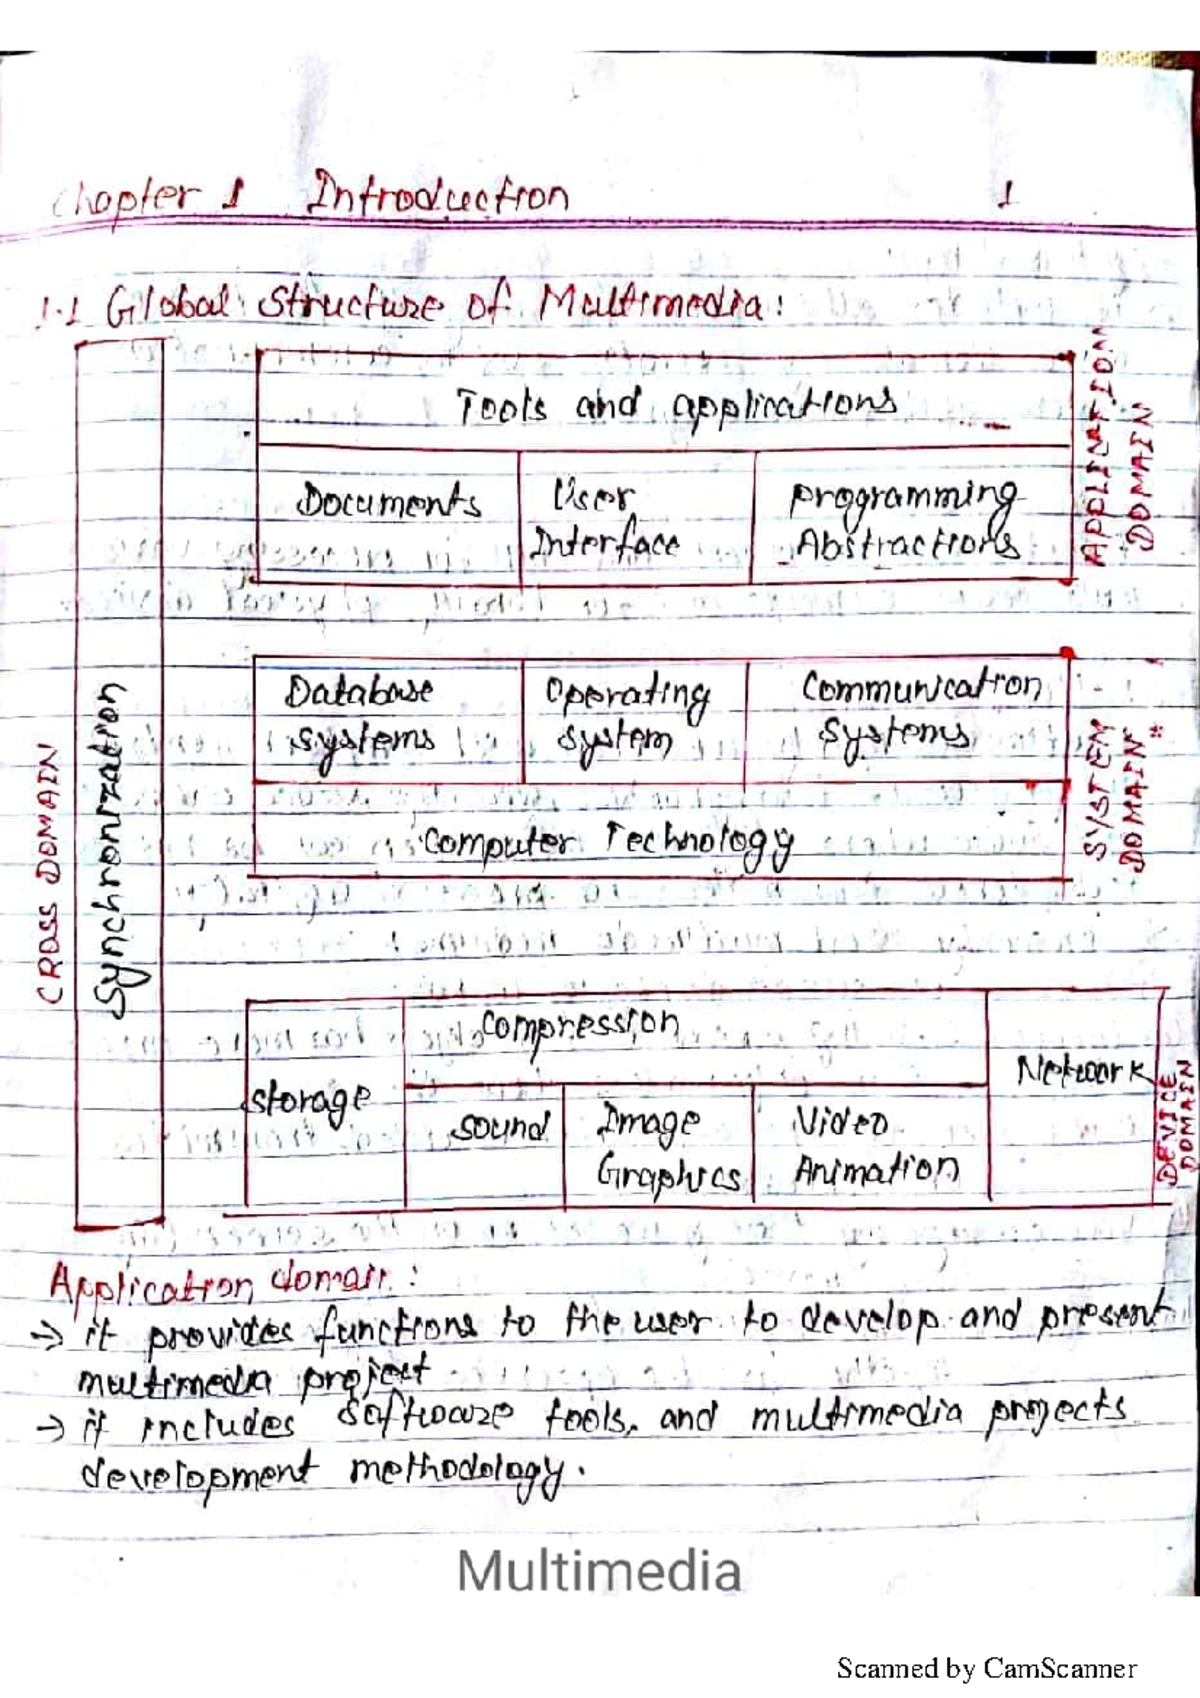 Chapter 1 Introduction 1
1.1 Global Structure of Multimedia:
CROSS DOMAIN
Synchronization
Tools and applications
Documents
User
Interface
programming
Abstractions
APPLICATION
DOMAIN
Database
systems
Operating
system
Communication
systems
Computer Technology
SYSTEM
DOMAIN *
storage
compression
sound
Image
Graphics
Video
Animation
Network
DEVICE
DOMAIN
Application domain:
→ it provides functions to the user to develop and present
multimedia project
→ it includes software tools, and multimedia projects
development methodology.
Multimedia
Scanned by CamScanner